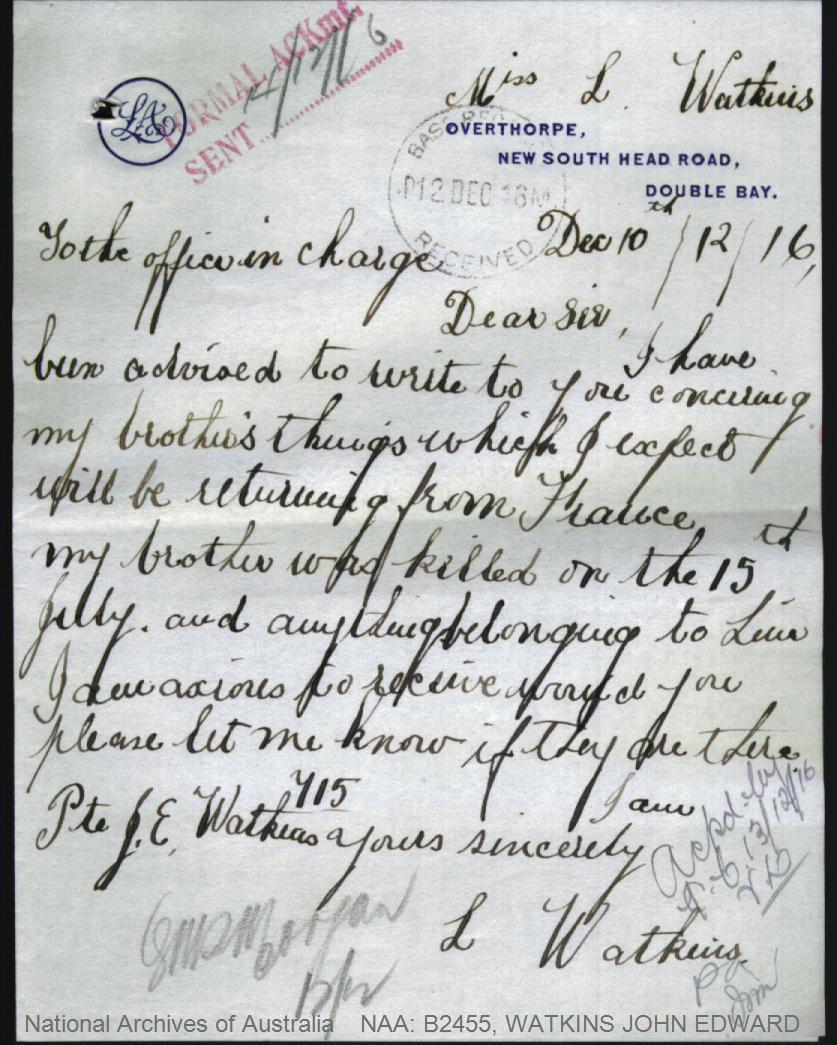 FORMAL ACKmt.
SENT
14/12/16
Miss L. Watkins
OVERTHORPE,
NEW SOUTH HEAD ROAD,
DOUBLE BAY.
BASE RECORDS
PM 12 DEC 16 M
RECEIVED
To the office in charge Dec 10th/12/16,
Dear Sir,
I have
been advised to write to you concering
my brother's things which I expect
will be returning from France
my brother was killed on the 15th
july. and anything belonging to him
I am axious to receive would you
please let me know if they are there
Pte J.E. Watkins 715 I am
yours sincerely
L Watkins.
Ackd. by
13/12/16
National Archives of Australia NAA: B2455, WATKINS JOHN EDWARD